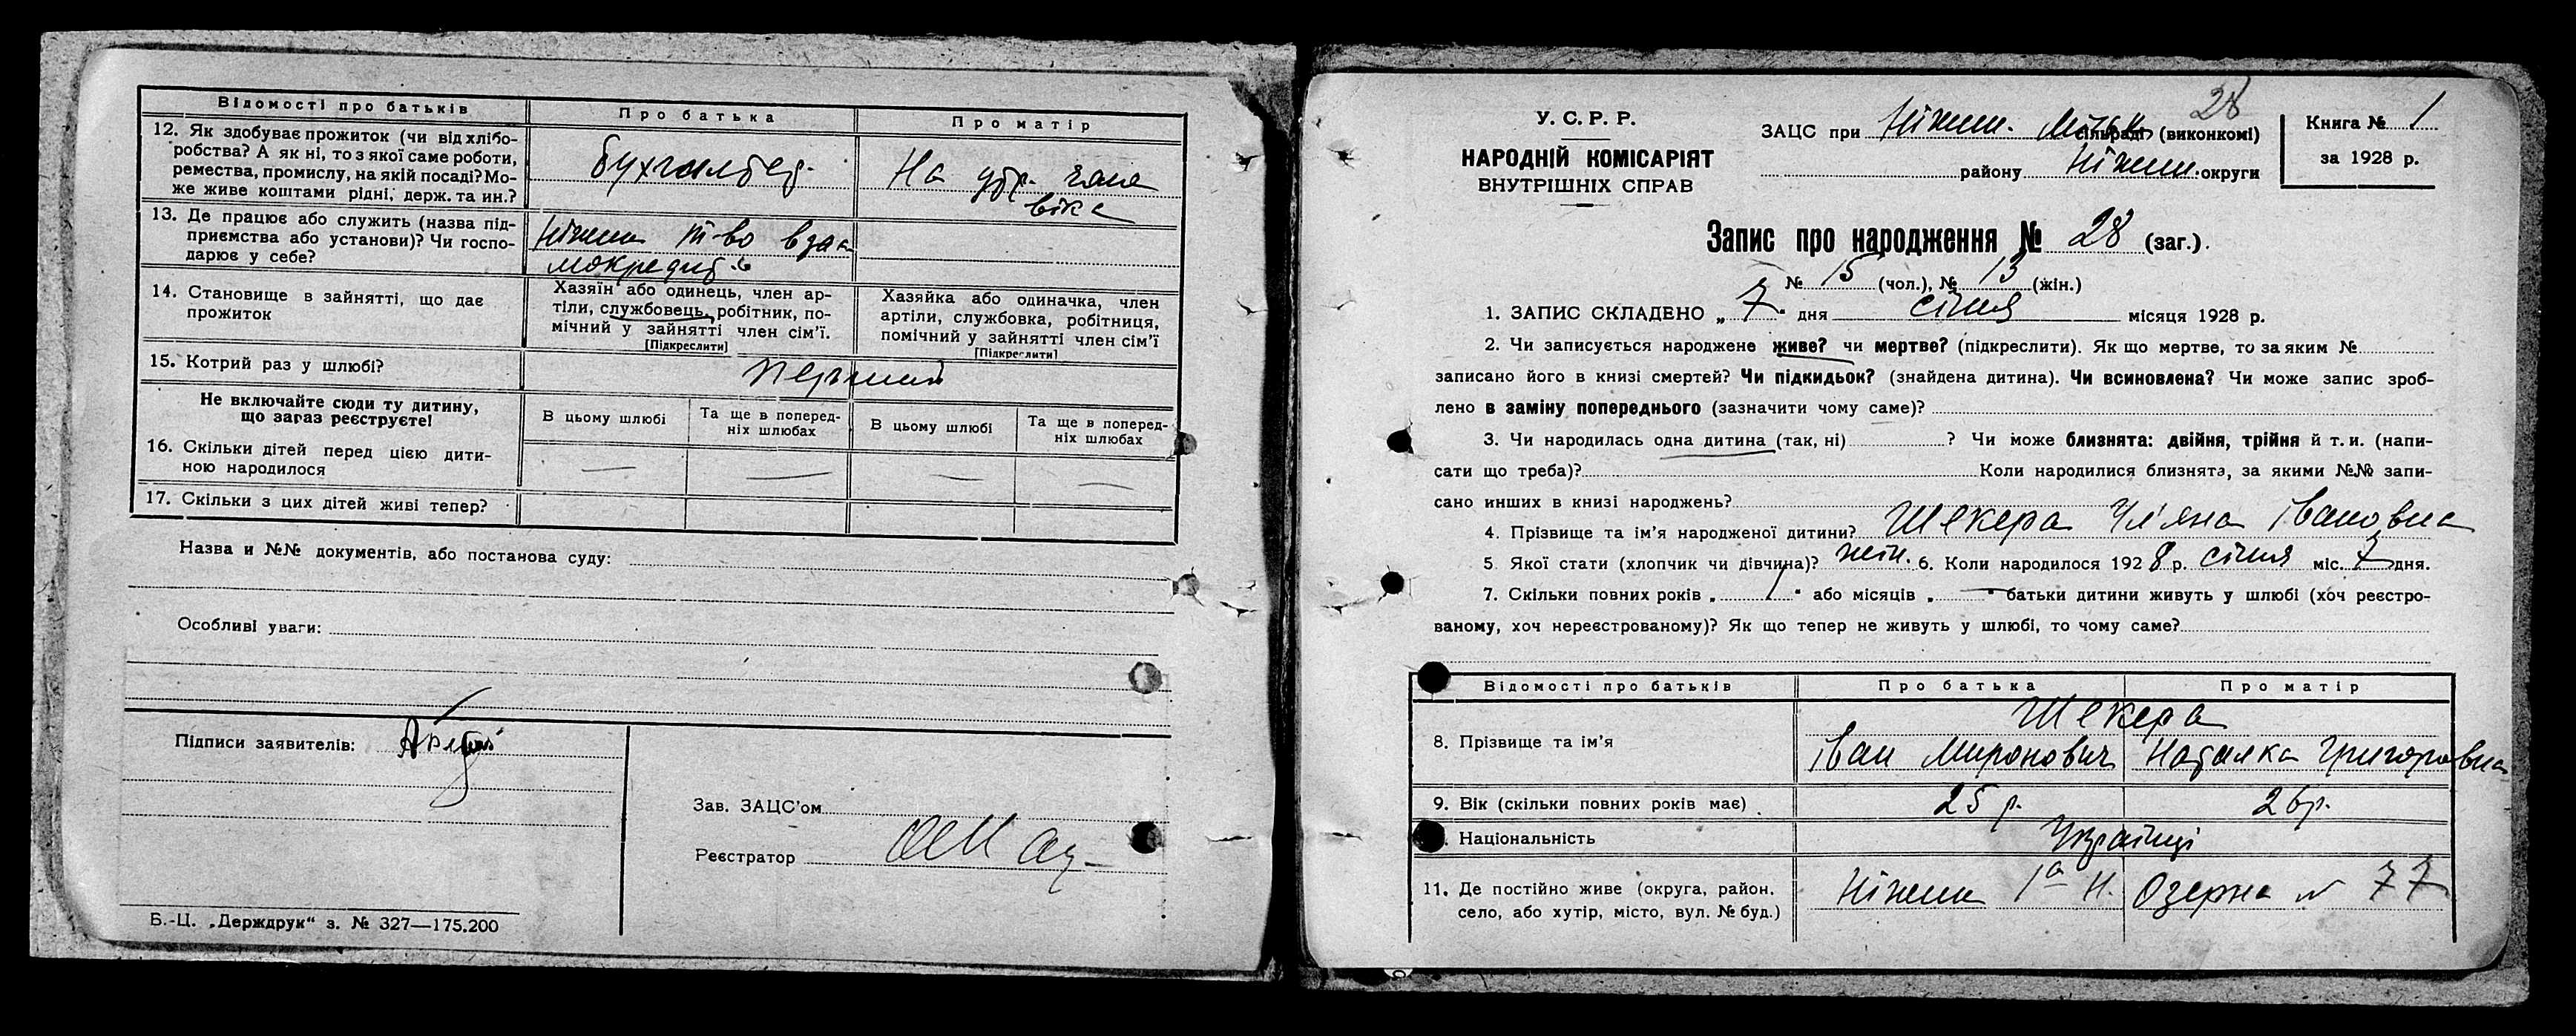 Відомості про батьків Про батька Про матір
12. Як здобуває прожиток (чи від хлібо-
робства? А як ні, то з якої саме роботи,
ремества, промислу, на якій посаді? Мо-
же живе коштами рідні, держ. та ин.?
Бухгалтер. На утр. чоло
віка
13. Де працює або служить (назва під-
приємства або установи)? Чи госпо-
дарює у себе?
Ніжин т-во вза
мокредит.
14. Становище в зайнятті, що дає
прожиток
Хазяїн або одинець, член ар-
тіли, службовець, робітник, по-
мічний у зайнятті член сім'ї.
[Підкреслити]
Хазяйка або одиначка, член
артіли, службовка, робітниця,
помічний у зайнятті член сім'ї
[Підкреслити]
15. Котрий раз у шлюбі? перший
Не включайте сюди ту дитину,
що зараз реєструєте!
В цьому шлюбі
Та ще в поперед-
ніх шлюбах
В цьому шлюбі
Та ще в поперед-
ніх шлюбах
16. Скільки дітей перед цією дити-
ною народилося — — — —
17. Скільки з цих дітей живі тепер?
Назва и №№ документів, або постанова суду:
Особливі уваги:
Підписи заявителів:
Зав. ЗАЦС'ом
Реєстратор
Б.-Ц. „Держдрук" з. № 327—175.200
28
У. С. Р. Р.
НАРОДНІЙ КОМІСАРІЯТ
ВНУТРІШНІХ СПРАВ
ЗАЦС при Ніжин. Міськ сільраді (виконкомі)
району Ніжин. округи
Книга № 1
за 1928 р.
Запис про народження № 28 (заг.).
№ 15 (чол.), № 13 (жін.)
1. ЗАПИС СКЛАДЕНО „ 7 " дня січня місяця 1928 р.
2. Чи записується народжене живе? чи мертве? (підкреслити). Як що мертве, то за яким №
записано його в книзі смертей? Чи підкидьок? (знайдена дитина). Чи всиновлена? Чи може запис зроб-
лено в заміну попереднього (зазначити чому саме)?
3. Чи народилась одна дитина (так, ні) ? Чи може близнята: двійня, трійня й т. и. (напи-
сати що треба)? Коли народилися близнята, за якими №№ запи-
сано инших в книзі народжень?
4. Прізвище та ім'я народженої дитини? Шекера Ул'яна Івановна
5. Якої стати (хлопчик чи дівчина)? жін. 6. Коли народилося 1928 р. січня міс. 7 дня.
7. Скільки повних років „ 1 " або місяців „ — " батьки дитини живуть у шлюбі (хоч реєстро-
ваному, хоч нереєстрованому)? Як що тепер не живуть у шлюбі, то чому саме?
Відомості про батьків Про батька Про матір
Шекера
8. Прізвище та ім'я Іван Миронович Наталка Григоровна
9. Вік (скільки повних років має) 25 р. 26 р.
Національність Українці
11. Де постійно живе (округа, район.
село, або хутір, місто, вул. № буд.)
Ніжин 1а Н. Озерна № 77